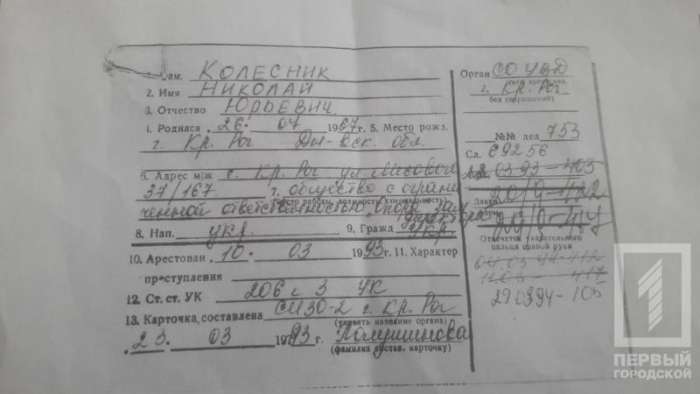 Фам. КОЛЕСНИК
2. Имя НИКОЛАЙ
3. Отчество ЮРЬЕВИЧ
4. Родился 26. 04 1967 г. 5. Место рожд.
г. Кр. Рог Дн-вск. обл.
6. Адрес м/ж г. Кр. Рог ул.
37/167 7. общество с ограни
ченной ответственностью
8. Нац. укр. 9. Гражд. Укр.
10. Арестован 10. 03 1993 г. 11. Характер
преступления
12. Ст. ст. УК 206 ч 3 УК
13. Карточка составлена СИЗО-2 г. Кр. Рог
(указать название органа)
23. 03 1993 г.
(фамилия состав. карточку)
Орган СО УВД
г. Кр. Рог
без сокращений)
№№ дел 753
Сл. 69256
Отпечаток указательного
пальца правой руки
290394-105
1
ПЕРВЫЙ
ГОРОДСКОЙ